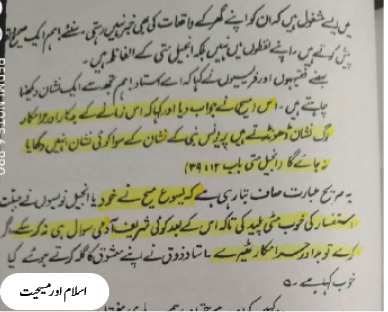 میں ایسے مشغول ہیں کہ ان کو اپنے گھر کے واقعات کی بھی خبر نہیں رہتی۔ سنئے! ہم ایک مسیحی
پیش کرتے ہیں۔ اپنے لفظوں میں نہیں بلکہ انجیل متی کے الفاظ ہیں۔
بعضے فقیہوں اور فریسیوں نے کہا کہ اے استاد! ہم تجھ سے ایک نشان دیکھنا
چاہتے ہیں۔ اس (مسیح نے) جواب دیا اور کہا کہ اس زمانے کے بدکار اور حرامکار
لوگ نشان ڈھونڈتے ہیں پر یونس نبی کے نشان کے سوا کوئی نشان انہیں دکھایا
نہ جائے گا (انجیل متی باب ۱۲: ۳۹)
یہ صریح عبارت صاف بتا رہی ہے کہ یسوع مسیح نے خود یا انجیل نویسوں نے
استفسار کی خوب مٹی پلید کی تاکہ اس کے بعد کوئی شریف آدمی سوال ہی نہ کر سکے، اگر
کرے تو بد اور حرامکار ٹھیرے۔ استاد ذوق نے اپنے معشوق کا گلہ کرتے ہوئے کیا
خوب کہا ہے۔
اسلام اور مسیحیت